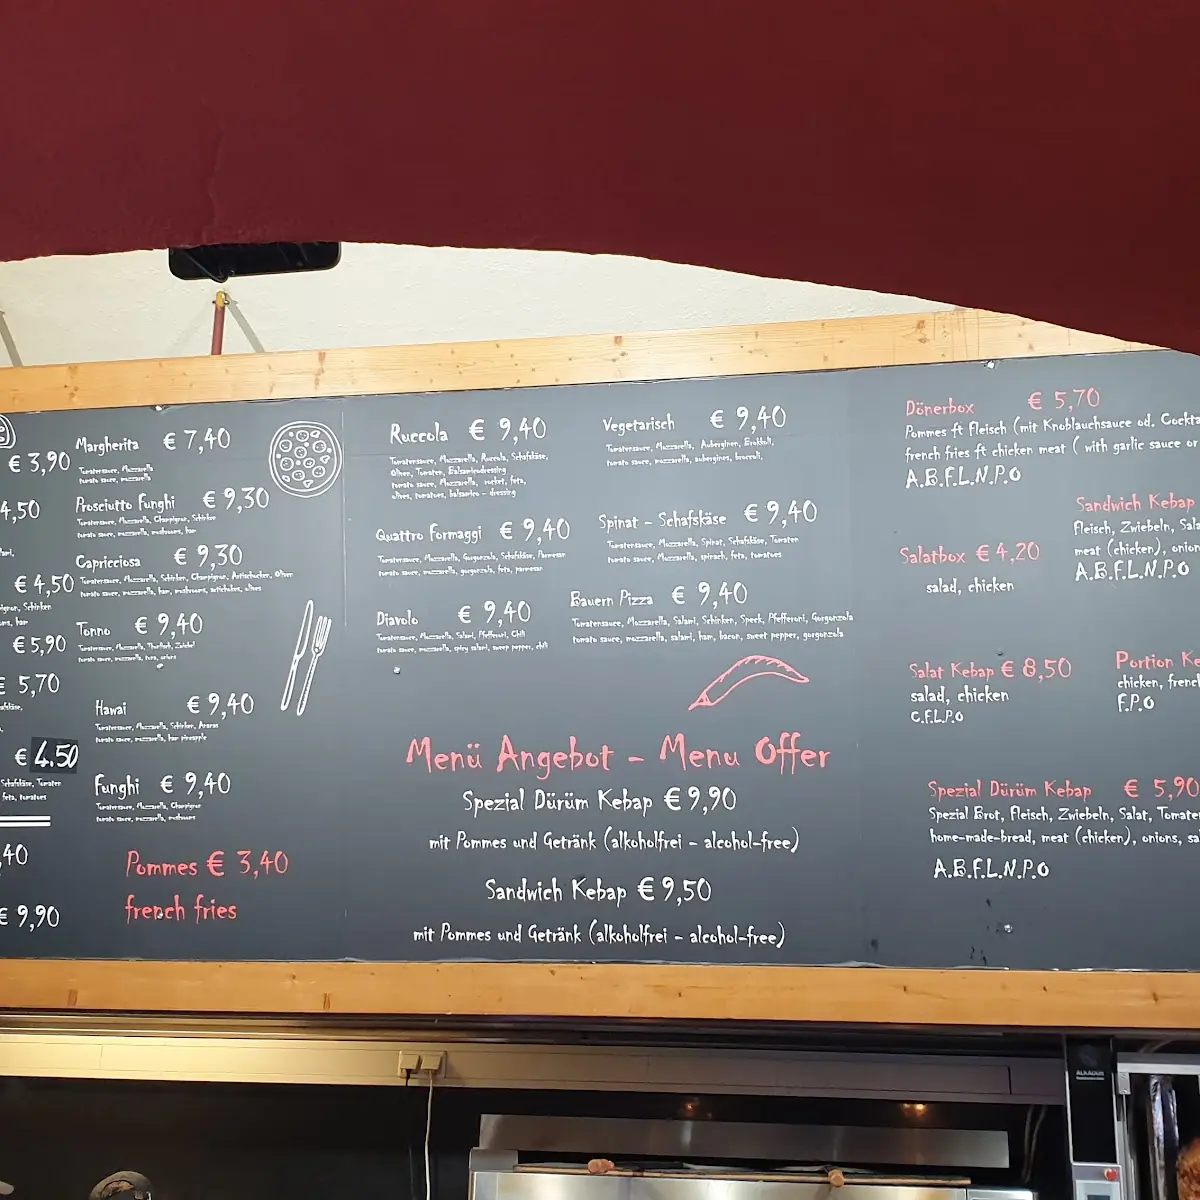 € 3,90
4,50
€ 4,50
Schinken
ham
€ 5,90
€ 5,70
€ 4.50
Schafskäse, Tomaten
feta, tomatoes
,40
€ 9,90
Margherita € 7,40
Tomatensauce, Mozzarella
tomato sauce, mozzarella
Prosciutto Funghi € 9,30
Tomatensauce, Mozzarella, Champignon, Schinken
tomato sauce, mozzarella, mushrooms, ham
Capricciosa € 9,30
Tomatensauce, Mozzarella, Schinken, Champignon, Artischocken, Oliven
tomato sauce, mozzarella, ham, mushrooms, artichokes, olives
Tonno € 9,40
Tomatensauce, Mozzarella, Thunfisch, Zwiebel
tomato sauce, mozzarella, tuna, onions
Hawai € 9,40
Tomatensauce, Mozzarella, Schinken, Ananas
tomato sauce, mozzarella, ham pineapple
Funghi € 9,40
Tomatensauce, Mozzarella, Champignon
tomato sauce, mozzarella, mushrooms
Pommes € 3,40
french fries
Ruccola € 9,40
Tomatensauce, Mozzarella, Ruccola, Schafskäse,
Oliven, Tomaten, Balsamicodressing
tomato sauce, Mozzarella, rocket, feta,
olives, tomatoes, balsamico - dressing
Quattro Formaggi € 9,40
Tomatensauce, Mozzarella, Gorgonzola, Schafskäse, Parmesan
tomato sauce, mozzarella, gorgonzola, feta, parmesan
Diavolo € 9,40
Tomatensauce, Mozzarella, Salami, Pfefferoni, Chili
tomato sauce, mozzarella, spicy salami, sweet pepper, chili
Vegetarisch € 9,40
Tomatensauce, Mozzarella, Auberginen, Brokkoli,
tomato sauce, mozzarella, aubergines, broccoli,
Spinat - Schafskäse € 9,40
Tomatensauce, Mozzarella, Spinat, Schafskäse, Tomaten
tomato sauce, Mozzarella, spinach, feta, tomatoes
Bauern Pizza € 9,40
Tomatensauce, Mozzarella, Salami, Schinken, Speck, Pfefferoni, Gorgonzola
tomato sauce, mozzarella, salami, ham, bacon, sweet pepper, gorgonzola
Menü Angebot - Menu Offer
Spezial Dürüm Kebap € 9,90
mit Pommes und Getränk (alkoholfrei - alcohol-free)
Sandwich Kebap € 9,50
mit Pommes und Getränk (alkoholfrei - alcohol-free)
Dönerbox € 5,70
Pommes ft Fleisch (mit Knoblauchsauce od. Cockta
french fries ft chicken meat ( with garlic sauce or
A.B.F.L.N.P.O
Sandwich Kebap
Fleisch, Zwiebeln, Sala
meat (chicken), onion
A.B.F.L.N.P.O
Salatbox € 4,20
salad, chicken
Salat Kebap € 8,50
salad, chicken
C.F.L.P.O
Portion Ke
chicken, french
F.P.O
Spezial Dürüm Kebap € 5,90
Spezial Brot, Fleisch, Zwiebeln, Salat, Tomaten
home-made-bread, meat (chicken), onions, sa
A.B.F.L.N.P.O
ALKADUR